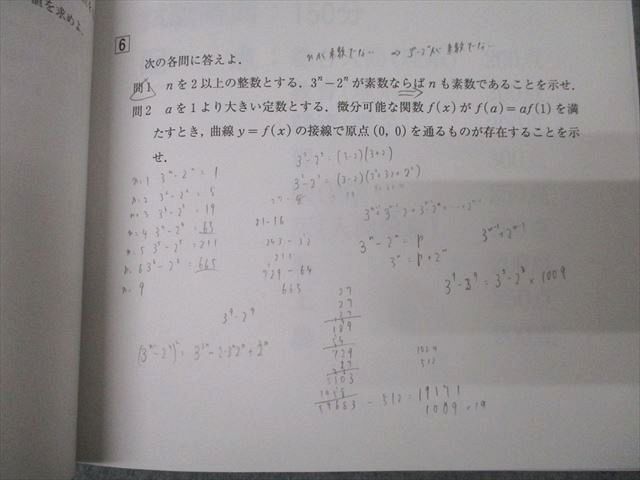 値を求めよ.
6
nが素数でない ⇒ 3ⁿ-2ⁿが素数でない
次の各問に答えよ.
問1 nを2以上の整数とする. 3ⁿ-2ⁿが素数ならばnも素数であることを示せ.
問2 aを1より大きい定数とする. 微分可能な関数f(x)がf(a)=af(1)を満
たすとき, 曲線y=f(x)の接線で原点(0, 0)を通るものが存在することを示
せ.
3²-2²=(3-2)(3+2)
3³-2³=(3-2)(3²+3·2+2²)
n=1 3ⁿ-2ⁿ=1
n=2 3²-2²=5
n=3 3³-2³=19
n=4 3⁴-2⁴=65
n=5 3⁵-2⁵=211
n=6 3⁶-2⁶=665
n=9
27-8
81-16
243-32
211
729-64
665
3ⁿ-2ⁿ=p
3ⁿ=p+2ⁿ
3ⁿ⁻¹+2ⁿ⁻¹
3⁹-2⁹=3³-2³×1009
3⁹-2⁹
(3ⁿ-2ⁿ)²=3²ⁿ-2·3ⁿ2ⁿ+2²ⁿ
27
27
189
54
729
27
5103
1458
19683-512=19171
1009×19
1024
512